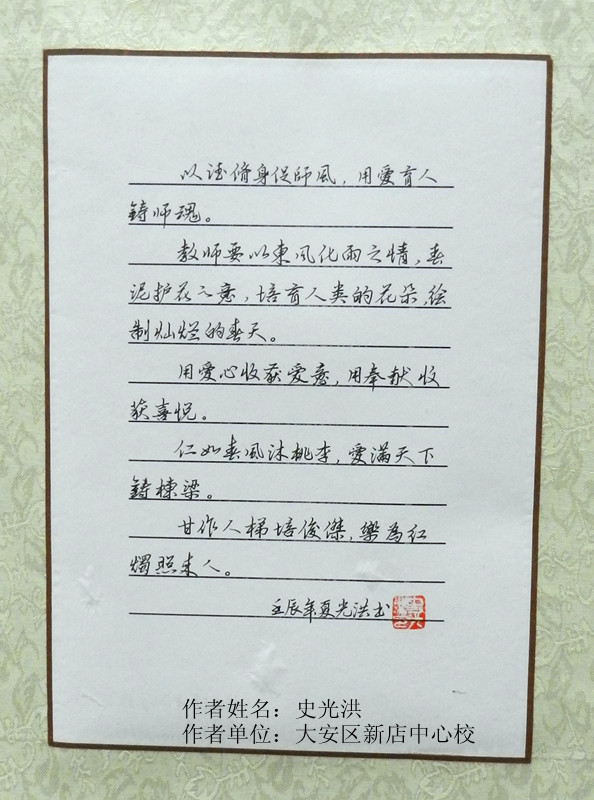 以法脩身促師風，用愛育人
鋳师魂。
教师要以東風化雨之情，春
泥护花之意，培育人类的花朵，绘
制灿烂的春天。
用爱心收获爱意，用奉献收
获喜悦。
仁如春風沐桃李，愛满天下
鋳棟梁。
甘作人梯培俊傑，樂為红
燭照来人。
壬辰年夏光洪书
作者姓名：史光洪
作者单位：大安区新店中心校